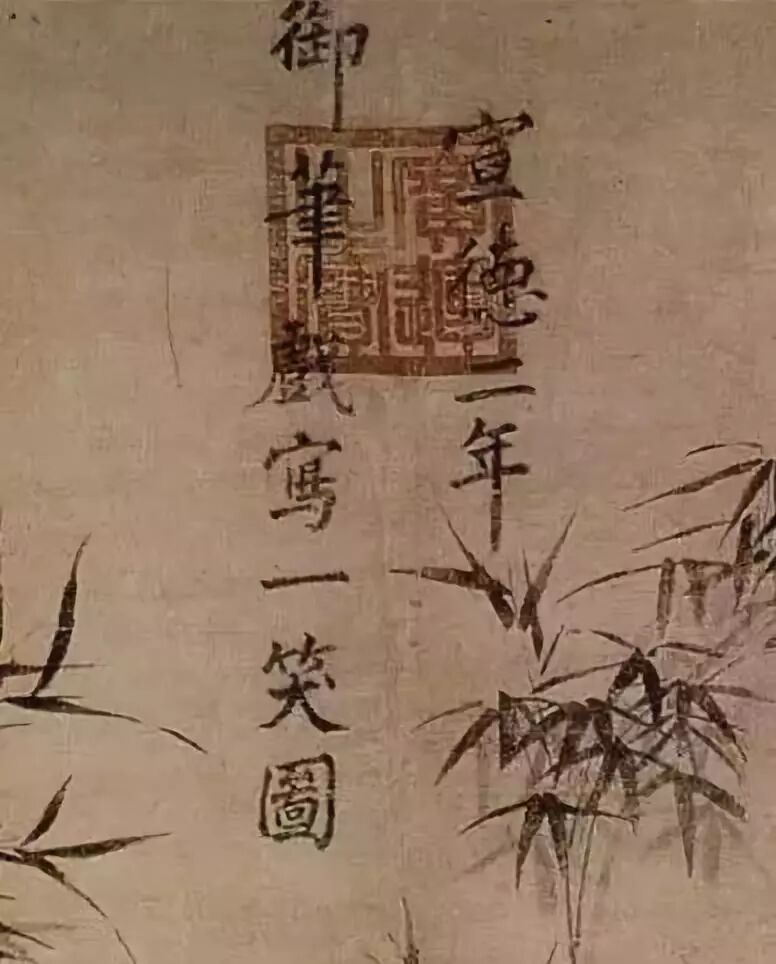 宣德二年
御筆戲寫一笑圖